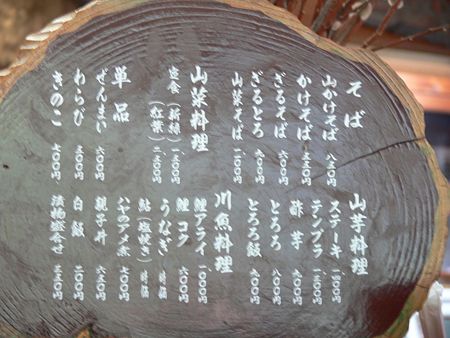 そば
山かけそば 八五〇円
かけそば 五五〇円
ざるそば 六〇〇円
ざるとろ 九〇〇円
山菜そば
山菜料理
定食(新緑) 一五〇〇円
(紅葉) 二五〇〇円
単品
ぜんまい 六〇〇円
わらび 五〇〇円
きのこ 七〇〇円
山芋料理
ステーキ
テンプラ
酢芋 九〇〇円
とろろ 八〇〇円
とろろ飯 九〇〇円
川魚料理
鯉アライ 一〇〇〇円
鯉コク 六〇〇円
うなぎ 時価
鮎(塩焼き) 時価
ハヤのアメ煮 七〇〇円
親子丼 六〇〇円
白飯 二〇〇円
漬物盛合せ 三五〇円